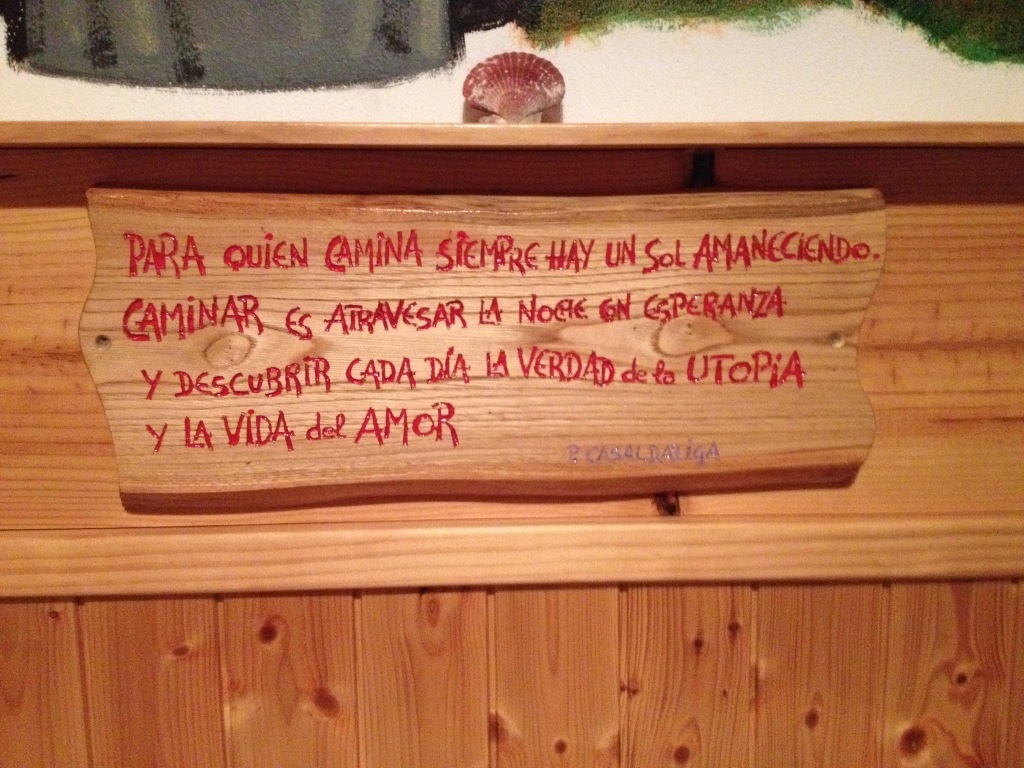 PARA QUIEN CAMINA SIEMPRE HAY UN SOL AMANECIENDO.
CAMINAR ES ATRAVESAR LA NOCHE EN ESPERANZA
Y DESCUBRIR CADA DÍA LA VERDAD de la UTOPIA
Y LA VIDA del AMOR
P. CASALDALIGA